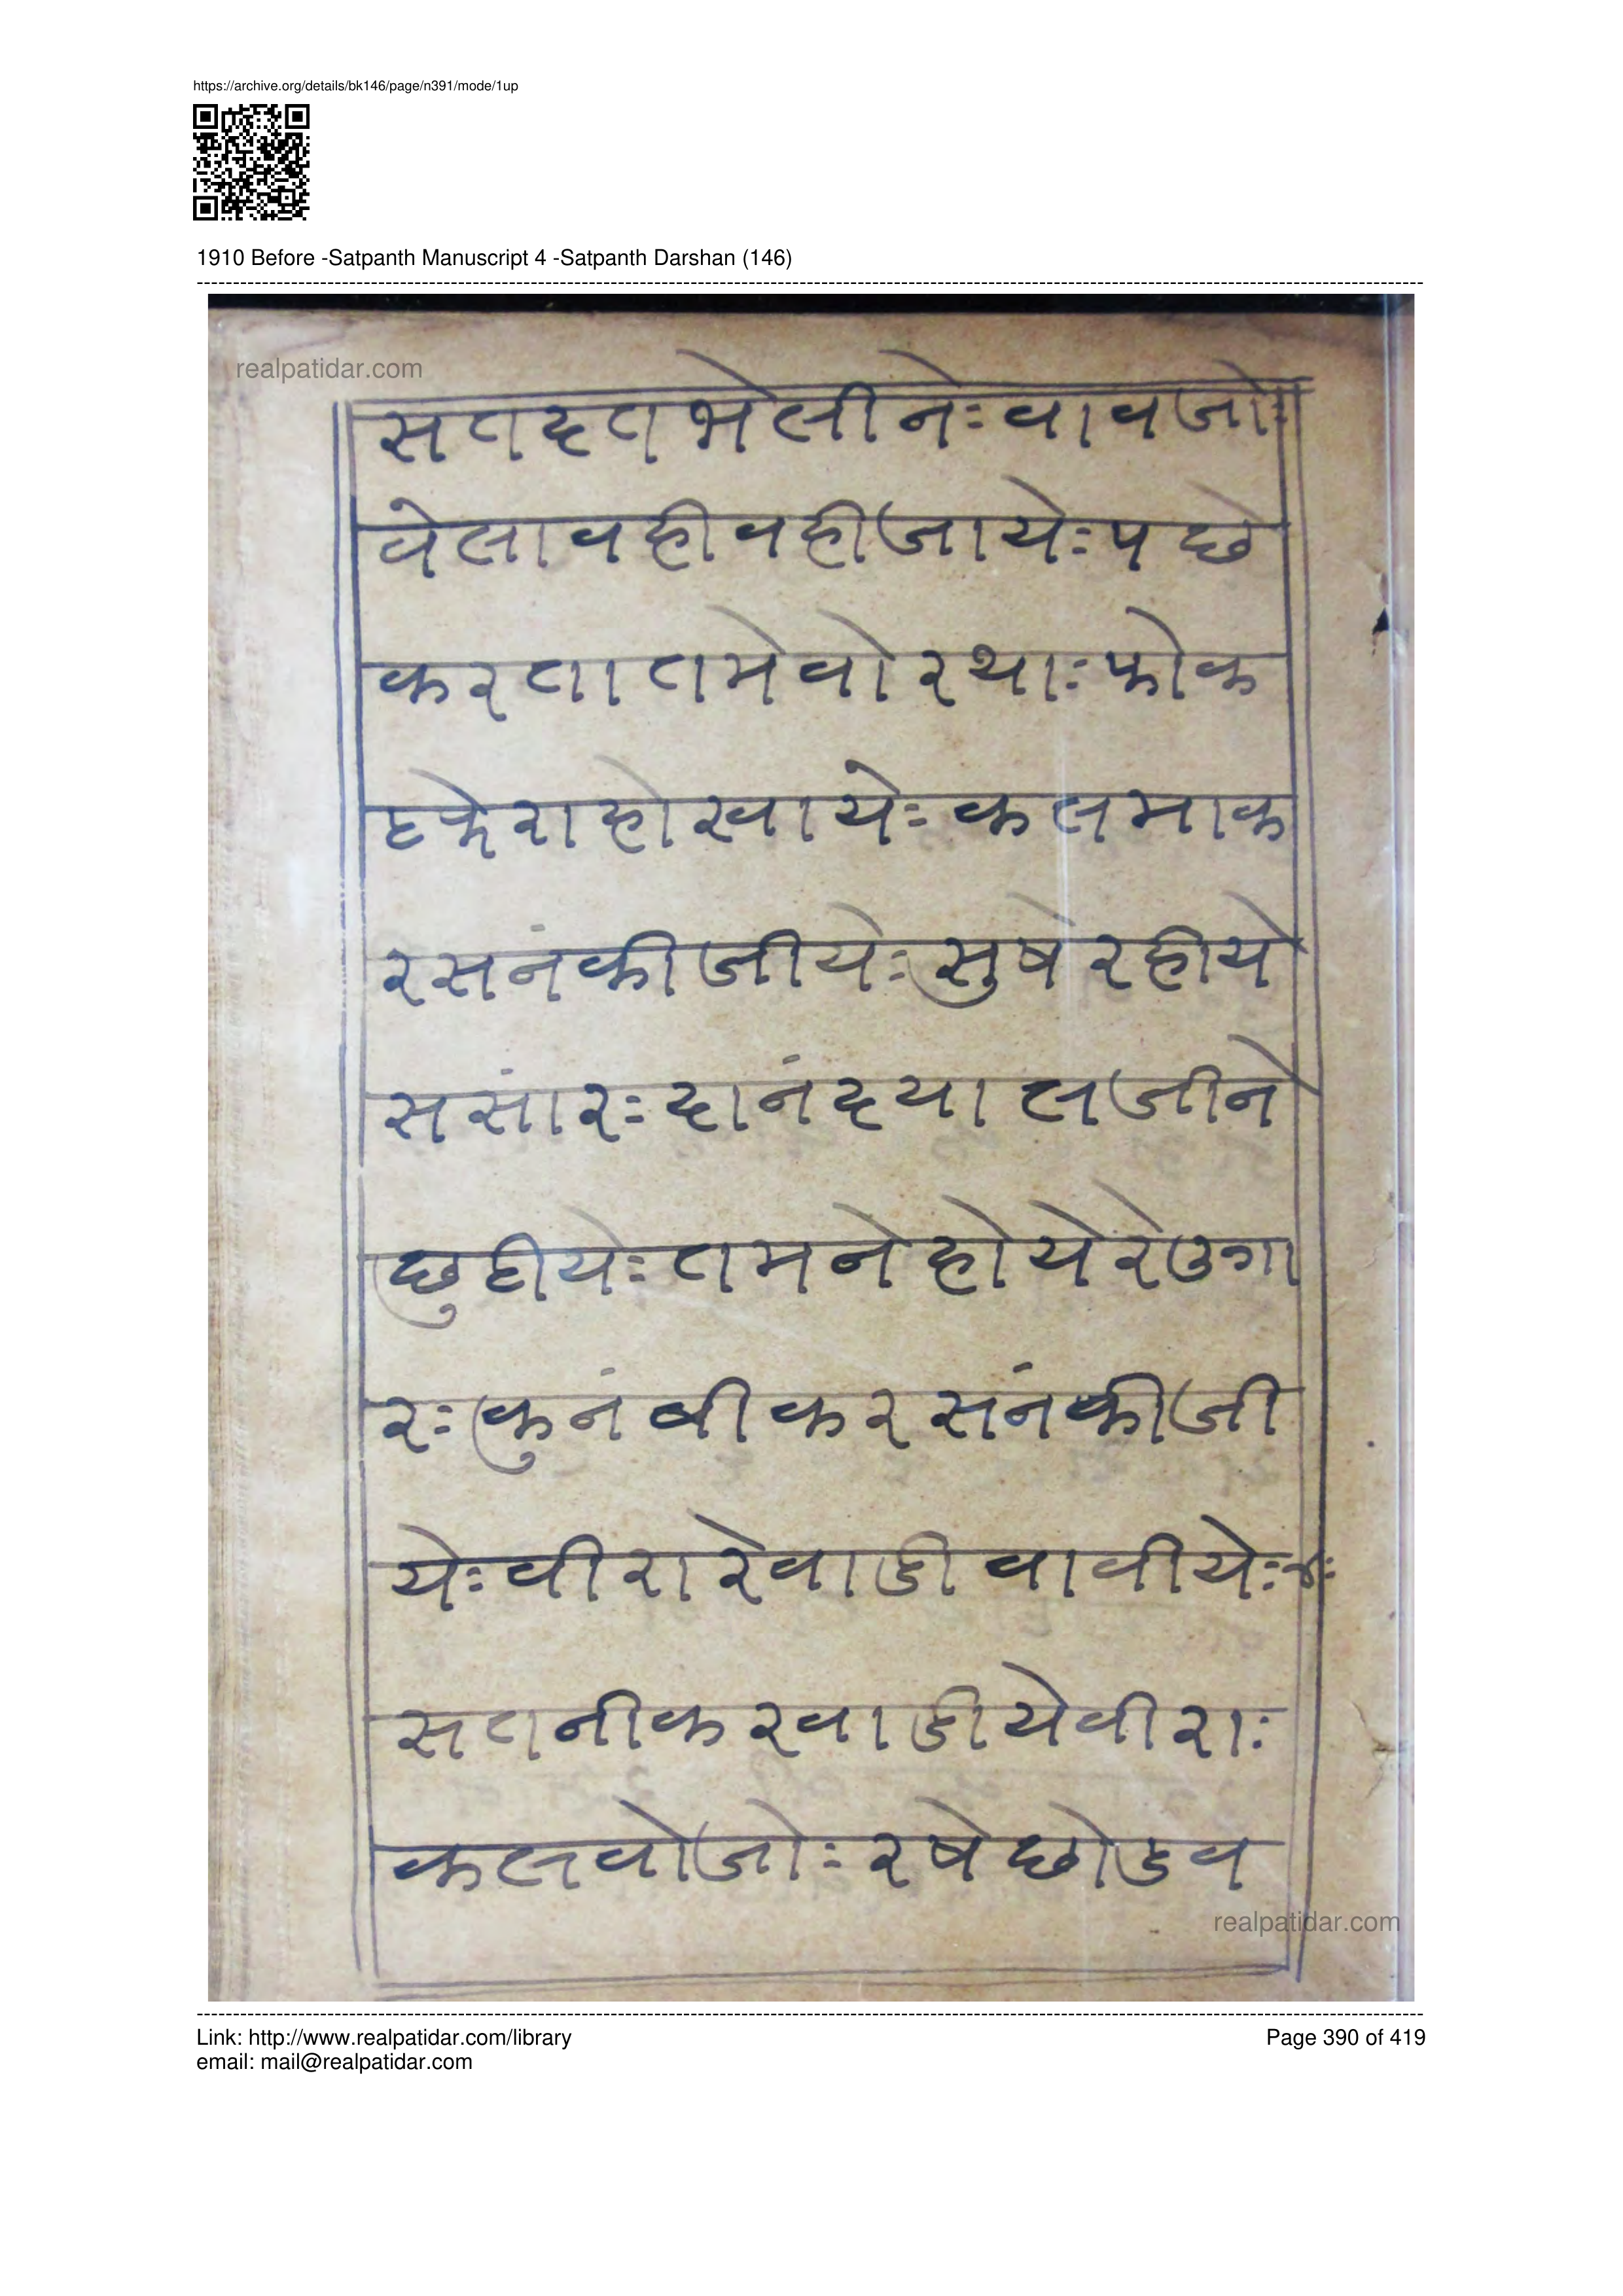 https://archive.org/details/bk146/page/n391/mode/1up
1910 Before -Satpanth Manuscript 4 -Satpanth Darshan (146)
realpatidar.com
सतदतभेलीनेः वावजोः
वेलावहीवहीजायेः पछे
करतातमेवोरथाः फोक
टफेराहोखायेः कलमाक
रसनंकीजीयेः सुषेरहीये
ससांरः दानंदयालजीने
छुटीयेः तमनेहोयेरेउगा
रः कुनंबीकरसंनंकीजी
येः वीरारेवाडीवावीयेः
सतनीकरवाडीयेवीराः
कलवोजोः रषेछोडव
realpatidar.com
Link: http://www.realpatidar.com/library
Page 390 of 419
email: mail@realpatidar.com